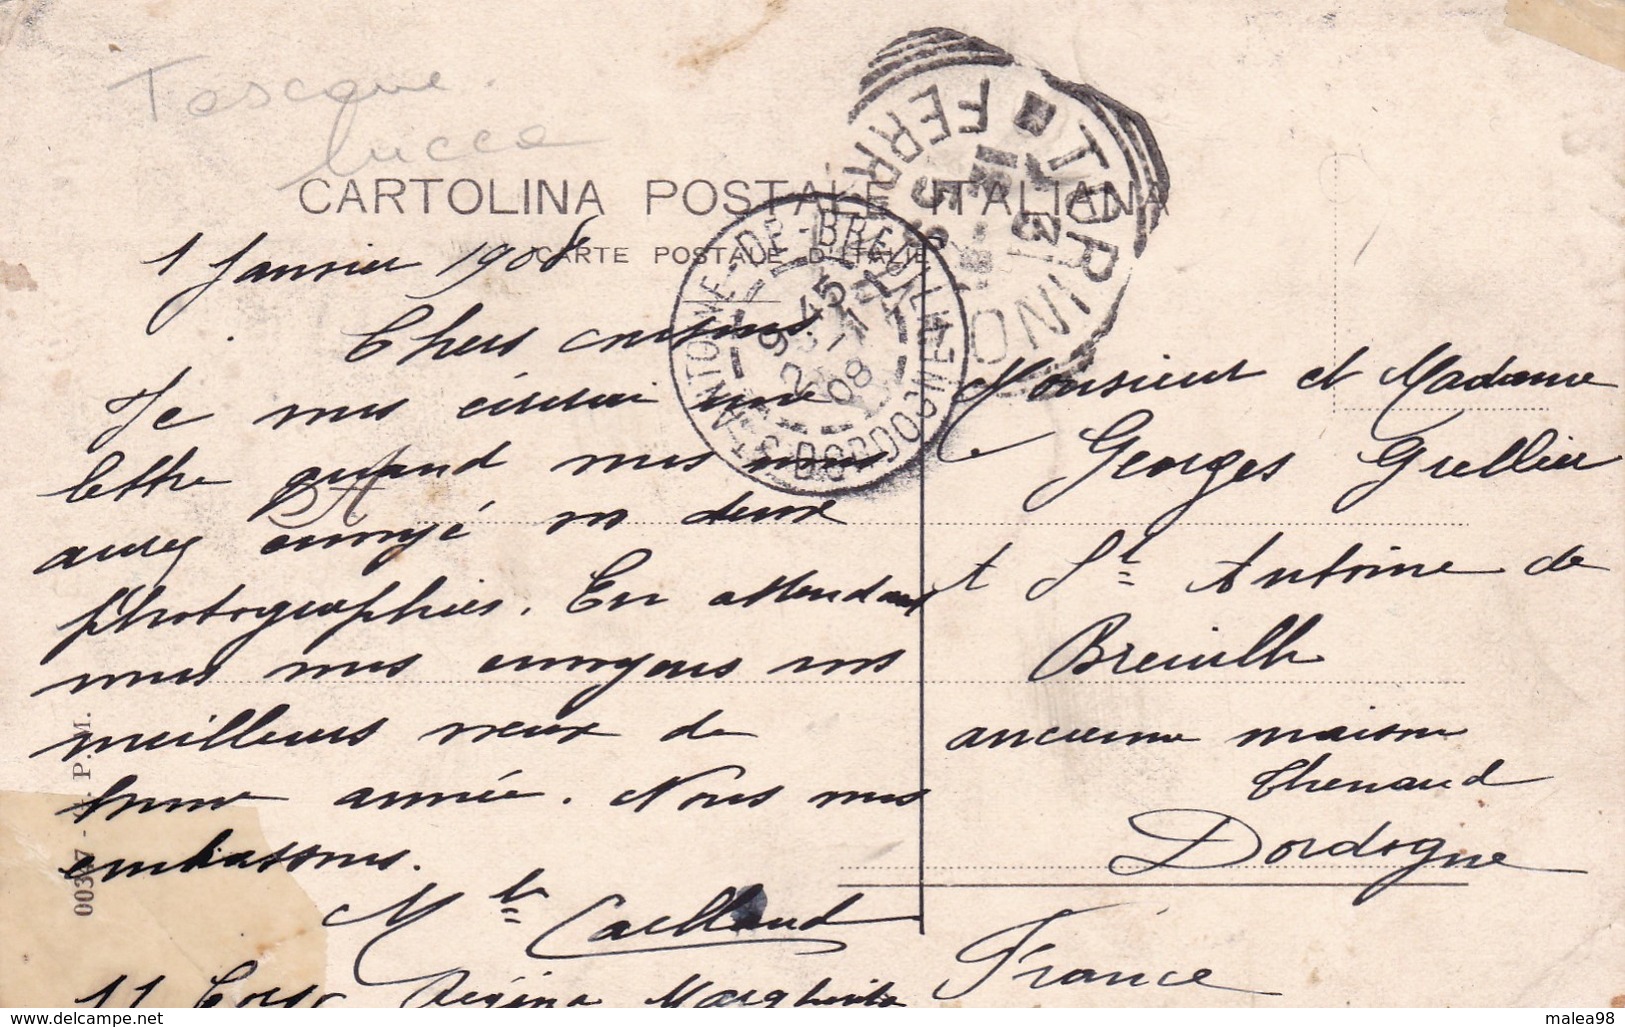 Toscane.
Lucca
CARTOLINA POSTALE ITALIANA
CARTE POSTALE D'ITALIE
TORINO FERR
ST ANTOINE-DE-BREUILH DORDOGNE
9 45
2 - 1
08
1 Janvier 1908
Chers cousins.
Je vous écrirai une
lettre quand vous nous
aurez envoyé vos deux
photographies. En attendant
nous vous envoyons nos
meilleurs vœux de
bonne année. Nous vous
embrassons.
Caillaud
11 Corso Régina Margherita
Monsieur et Madame
Georges Grellier
à St Antoine de
Breuilh
ancienne maison
Thenaud
Dordogne
France
delcampe.net
malea98